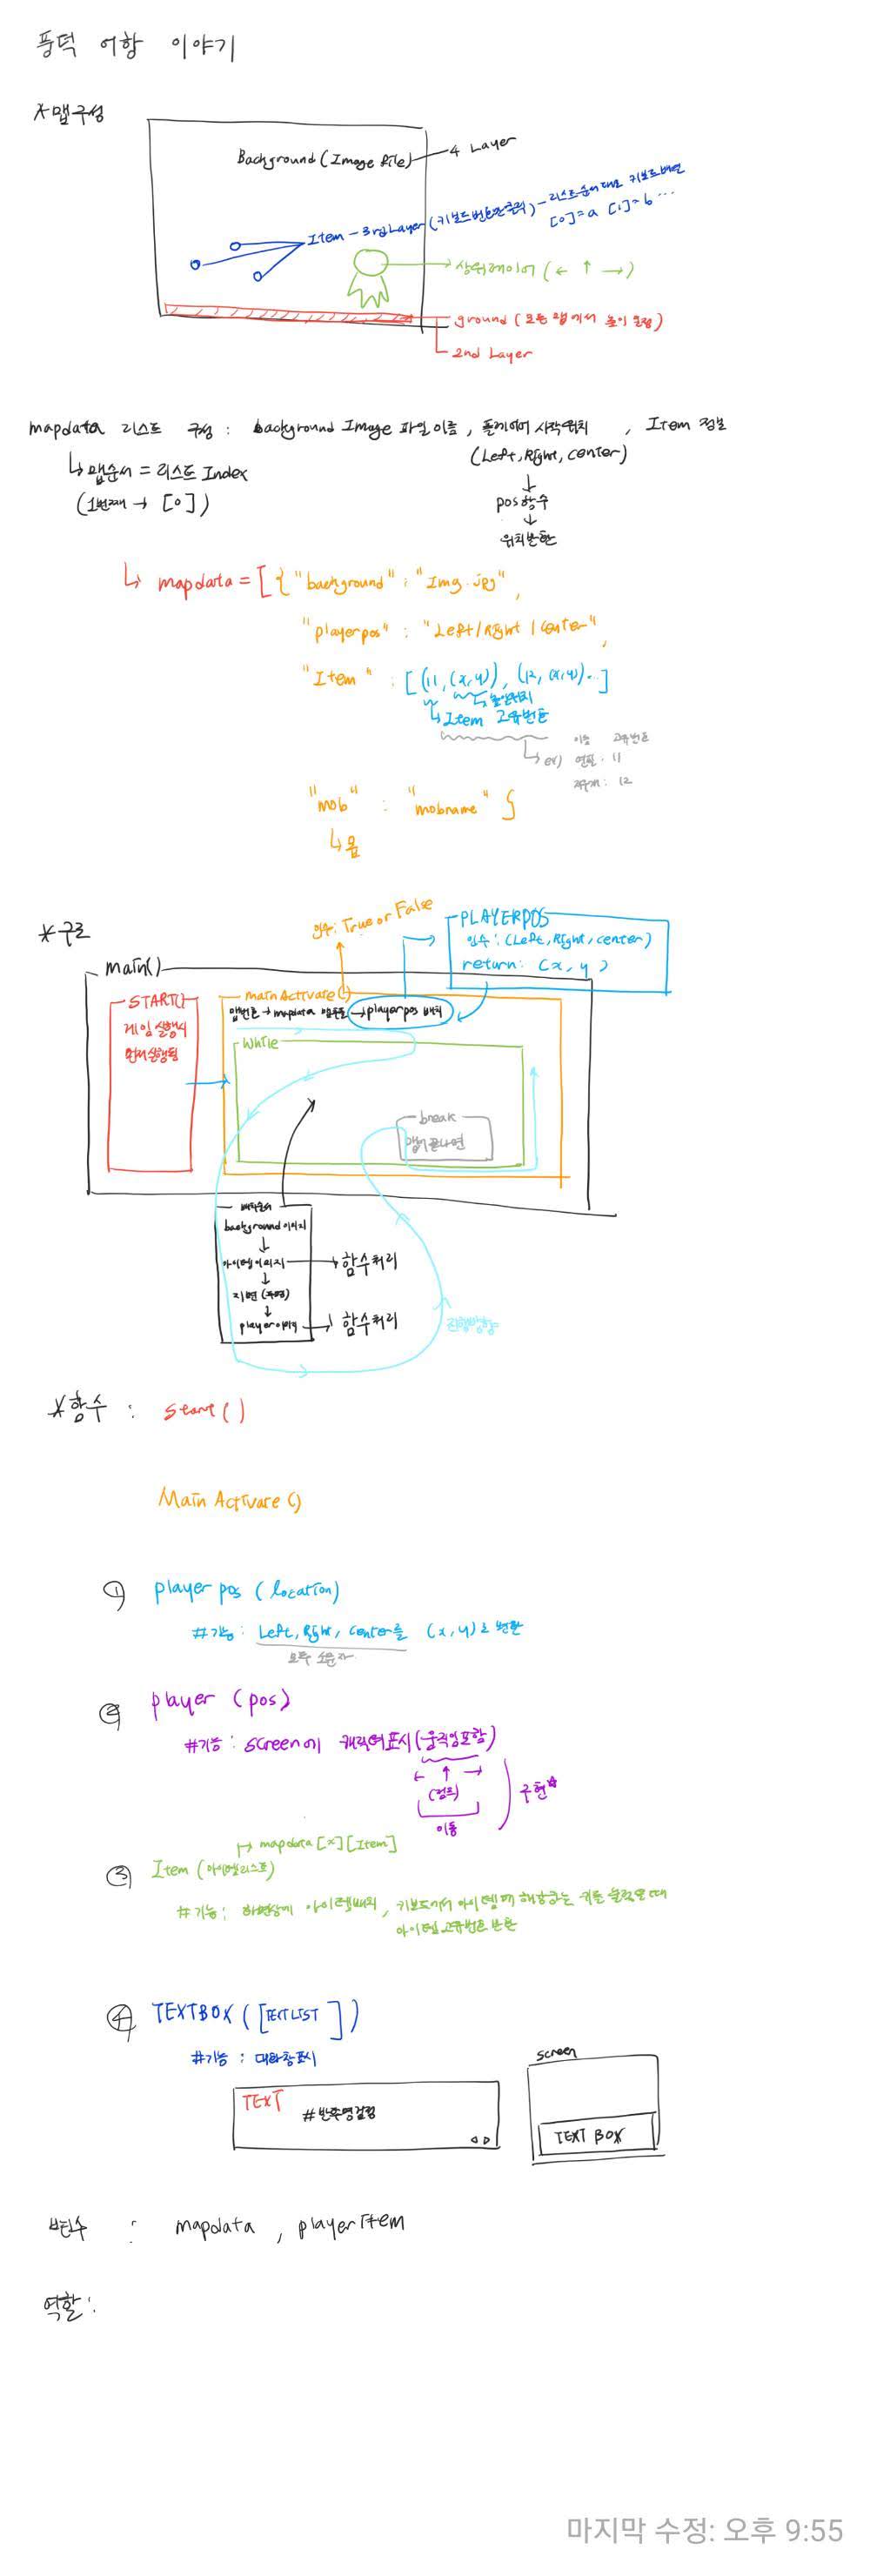 풍덕 어항 이야기
*맵구성
Background (Image file) 4 Layer
Item - 3rd Layer (키보드번호만클릭) - 리스트순서대로 키보드배열
[0]=a [1]=b ...
상위레이어 (← ↑ →)
ground (모든 맵에서 높이 일정)
2nd Layer
mapdata 리스트 구성 : background Image 파일이름, 플레이어 시작위치, Item 정보
↳맵순서 = 리스트 Index
(Left, Right, center)
(1번째 → [0])
↓
pos함수
↓
위치반환
↳ mapdata = [ { "background" : "Img.jpg",
"playerpos" : "Left/Right/center",
"Item" : [(11, (x,y)), (12, (x,y)).. ]
↳놓일위치
↳Item 고유번호
이름 고유번호
↳ex) 연필 : 11
지우개 : 12
"mob" : "mobname" }
↳몹
*구조
인수: True or False
PLAYERPOS
인수 : (Left, Right, center)
return: (x, y)
main()
START()
게임 실행시
먼저실행됨
mainActivate()
맵번호→mapdata →playerpos 배치
While
break
맵이끝나면
배치순서
background 이미지
↓
아이템이미지 → 함수처리
↓
지면(투명)
↓
player이미지 → 함수처리
진행방향
*함수 : Start()
Main Activate()
① player pos (location)
#기능 : Left, Right, center를 (x,y)로 변환
모두 소문자
② player (pos)
#기능 : screen에 캐릭터표시(움직임포함)
← ↑ →
(점프)
이동
구현*
↦ mapdata[x][Item]
③ Item (아이템리스트)
#기능 : 화면상에 아이템배치, 키보드에서 아이템에 해당하는 키를 눌렀을때
아이템고유번호 반환
④ TEXTBOX ([TEXTLIST])
#기능 : 대화창표시
TEXT
#반투명검정
◁ ▷
screen
TEXT BOX
변수 : mapdata, playerItem
역할 :
마지막 수정: 오후 9:55